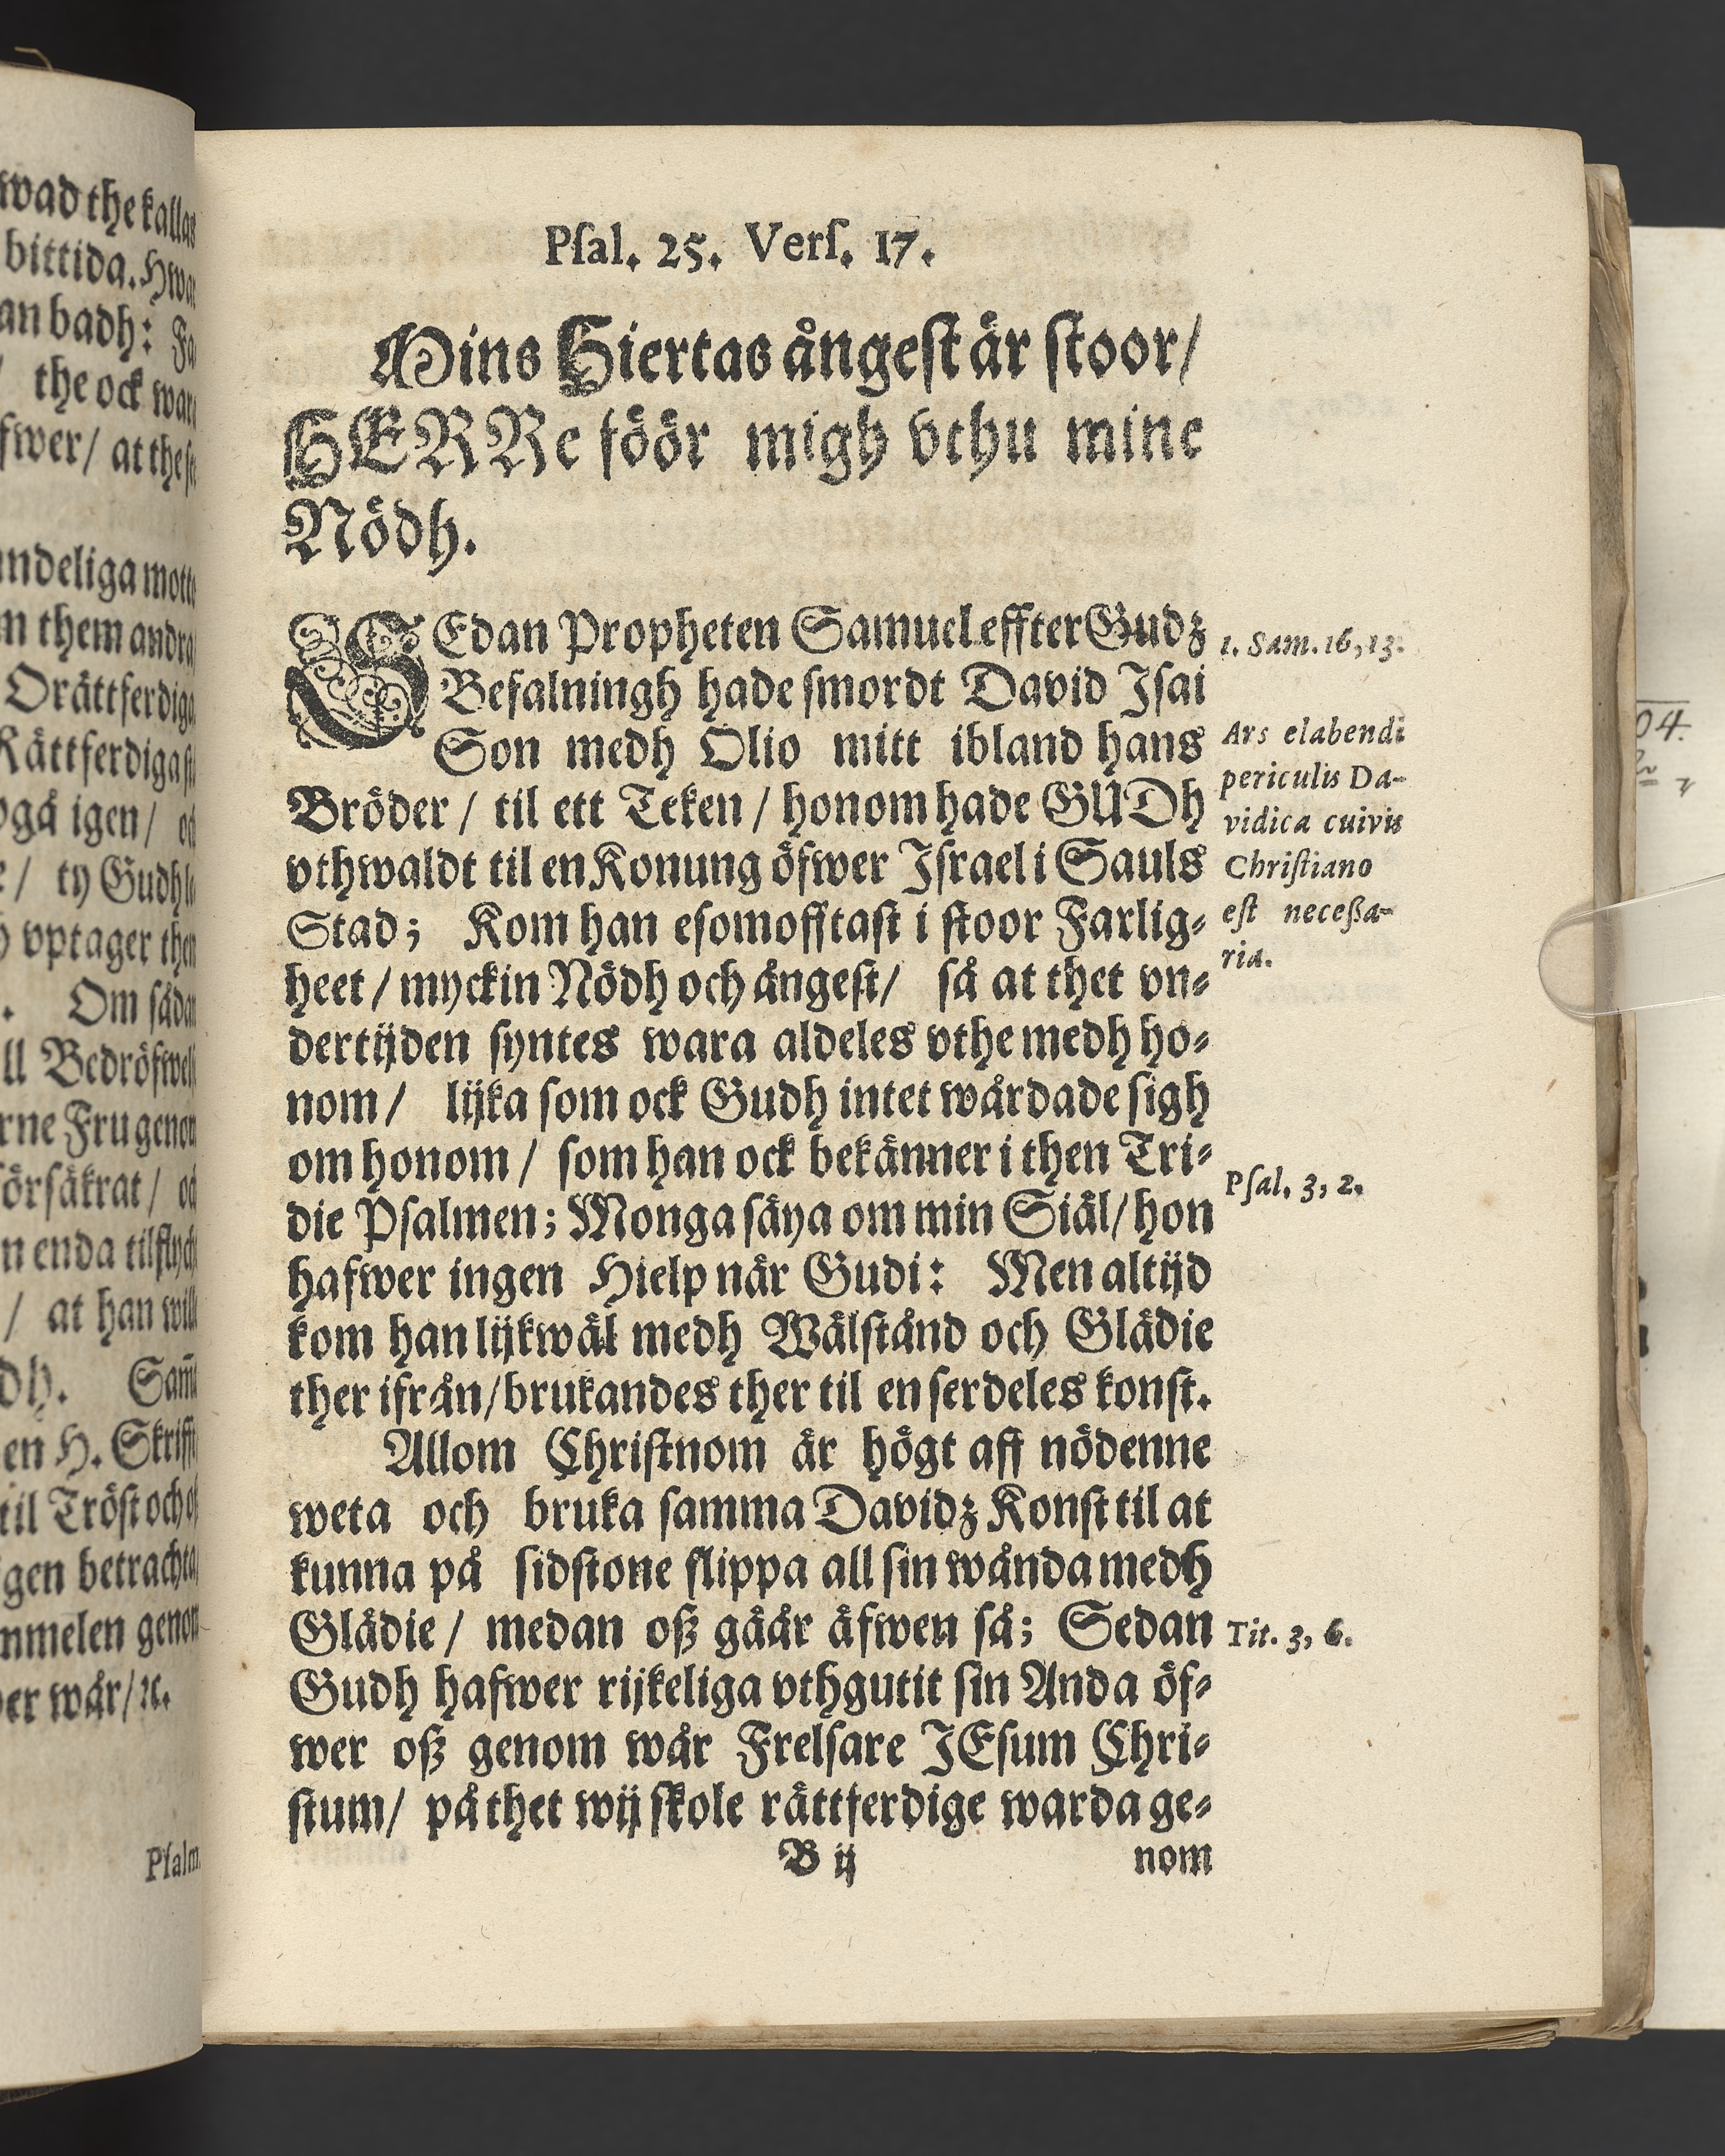 wad the kallas
bittida. Hwar
an badh:
the ock wara
fwer/ at the
ndeliga
them andra
Orättferdiga
Rättferdiga
igen/
ty Gudh
vptager then
. Om sådan
ll Bedröfwel
rne Fru genom
örsäkrat/
n enda tilflyckt
/ at han wille
dh.
en H. Skrifft
til Tröst och
gen betrachta
mmelen genom
er wår/ ꝛc.
Psalm.
Psal. 25. Vers. 17.
Mins Hiertas ångest är stoor/
HERRe föör migh vthu mine
Nödh.
SEdan Propheten Samuel effter Gudz
Befalningh hade smordt David Isai
Son medh Olio mitt ibland hans
Bröder/ til ett Teken/ honom hade GUDh
vthwaldt til en Konung öfwer Israel i Sauls
Stad; Kom han esomofftast i stoor Farlig-
heet/ myckin Nödh och ångest/ så at thet vn-
dertijden syntes wara aldeles vthe medh ho-
nom/ lijka som ock Gudh intet wårdade sigh
om honom/ som han ock bekänner i then Tri-
die Psalmen; Monga säya om min Siäl/ hon
hafwer ingen Hielp när Gudi: Men altijd
kom han lijkwäl medh Wälstånd och Glädie
ther ifrån/ brukandes ther til en serdeles konst.
Allom Christnom är högt aff nödenne
weta och bruka samma Davidz Konst til at
kunna på sidstone slippa all sin wånda medh
Glädie/ medan oß gåår äfwen så; Sedan
Gudh hafwer rijkeliga vthgutit sin Anda öf-
wer oß genom wår Frelsare JEsum Chri-
stum/ på thet wij skole rättferdige warda ge-
B ij nom
1. Sam. 16, 13.
Ars elabendi
periculis Da-
vidica cuivis
Christiano
est neceßa-
ria.
Psal. 3, 2.
Tit. 3, 6.
04.